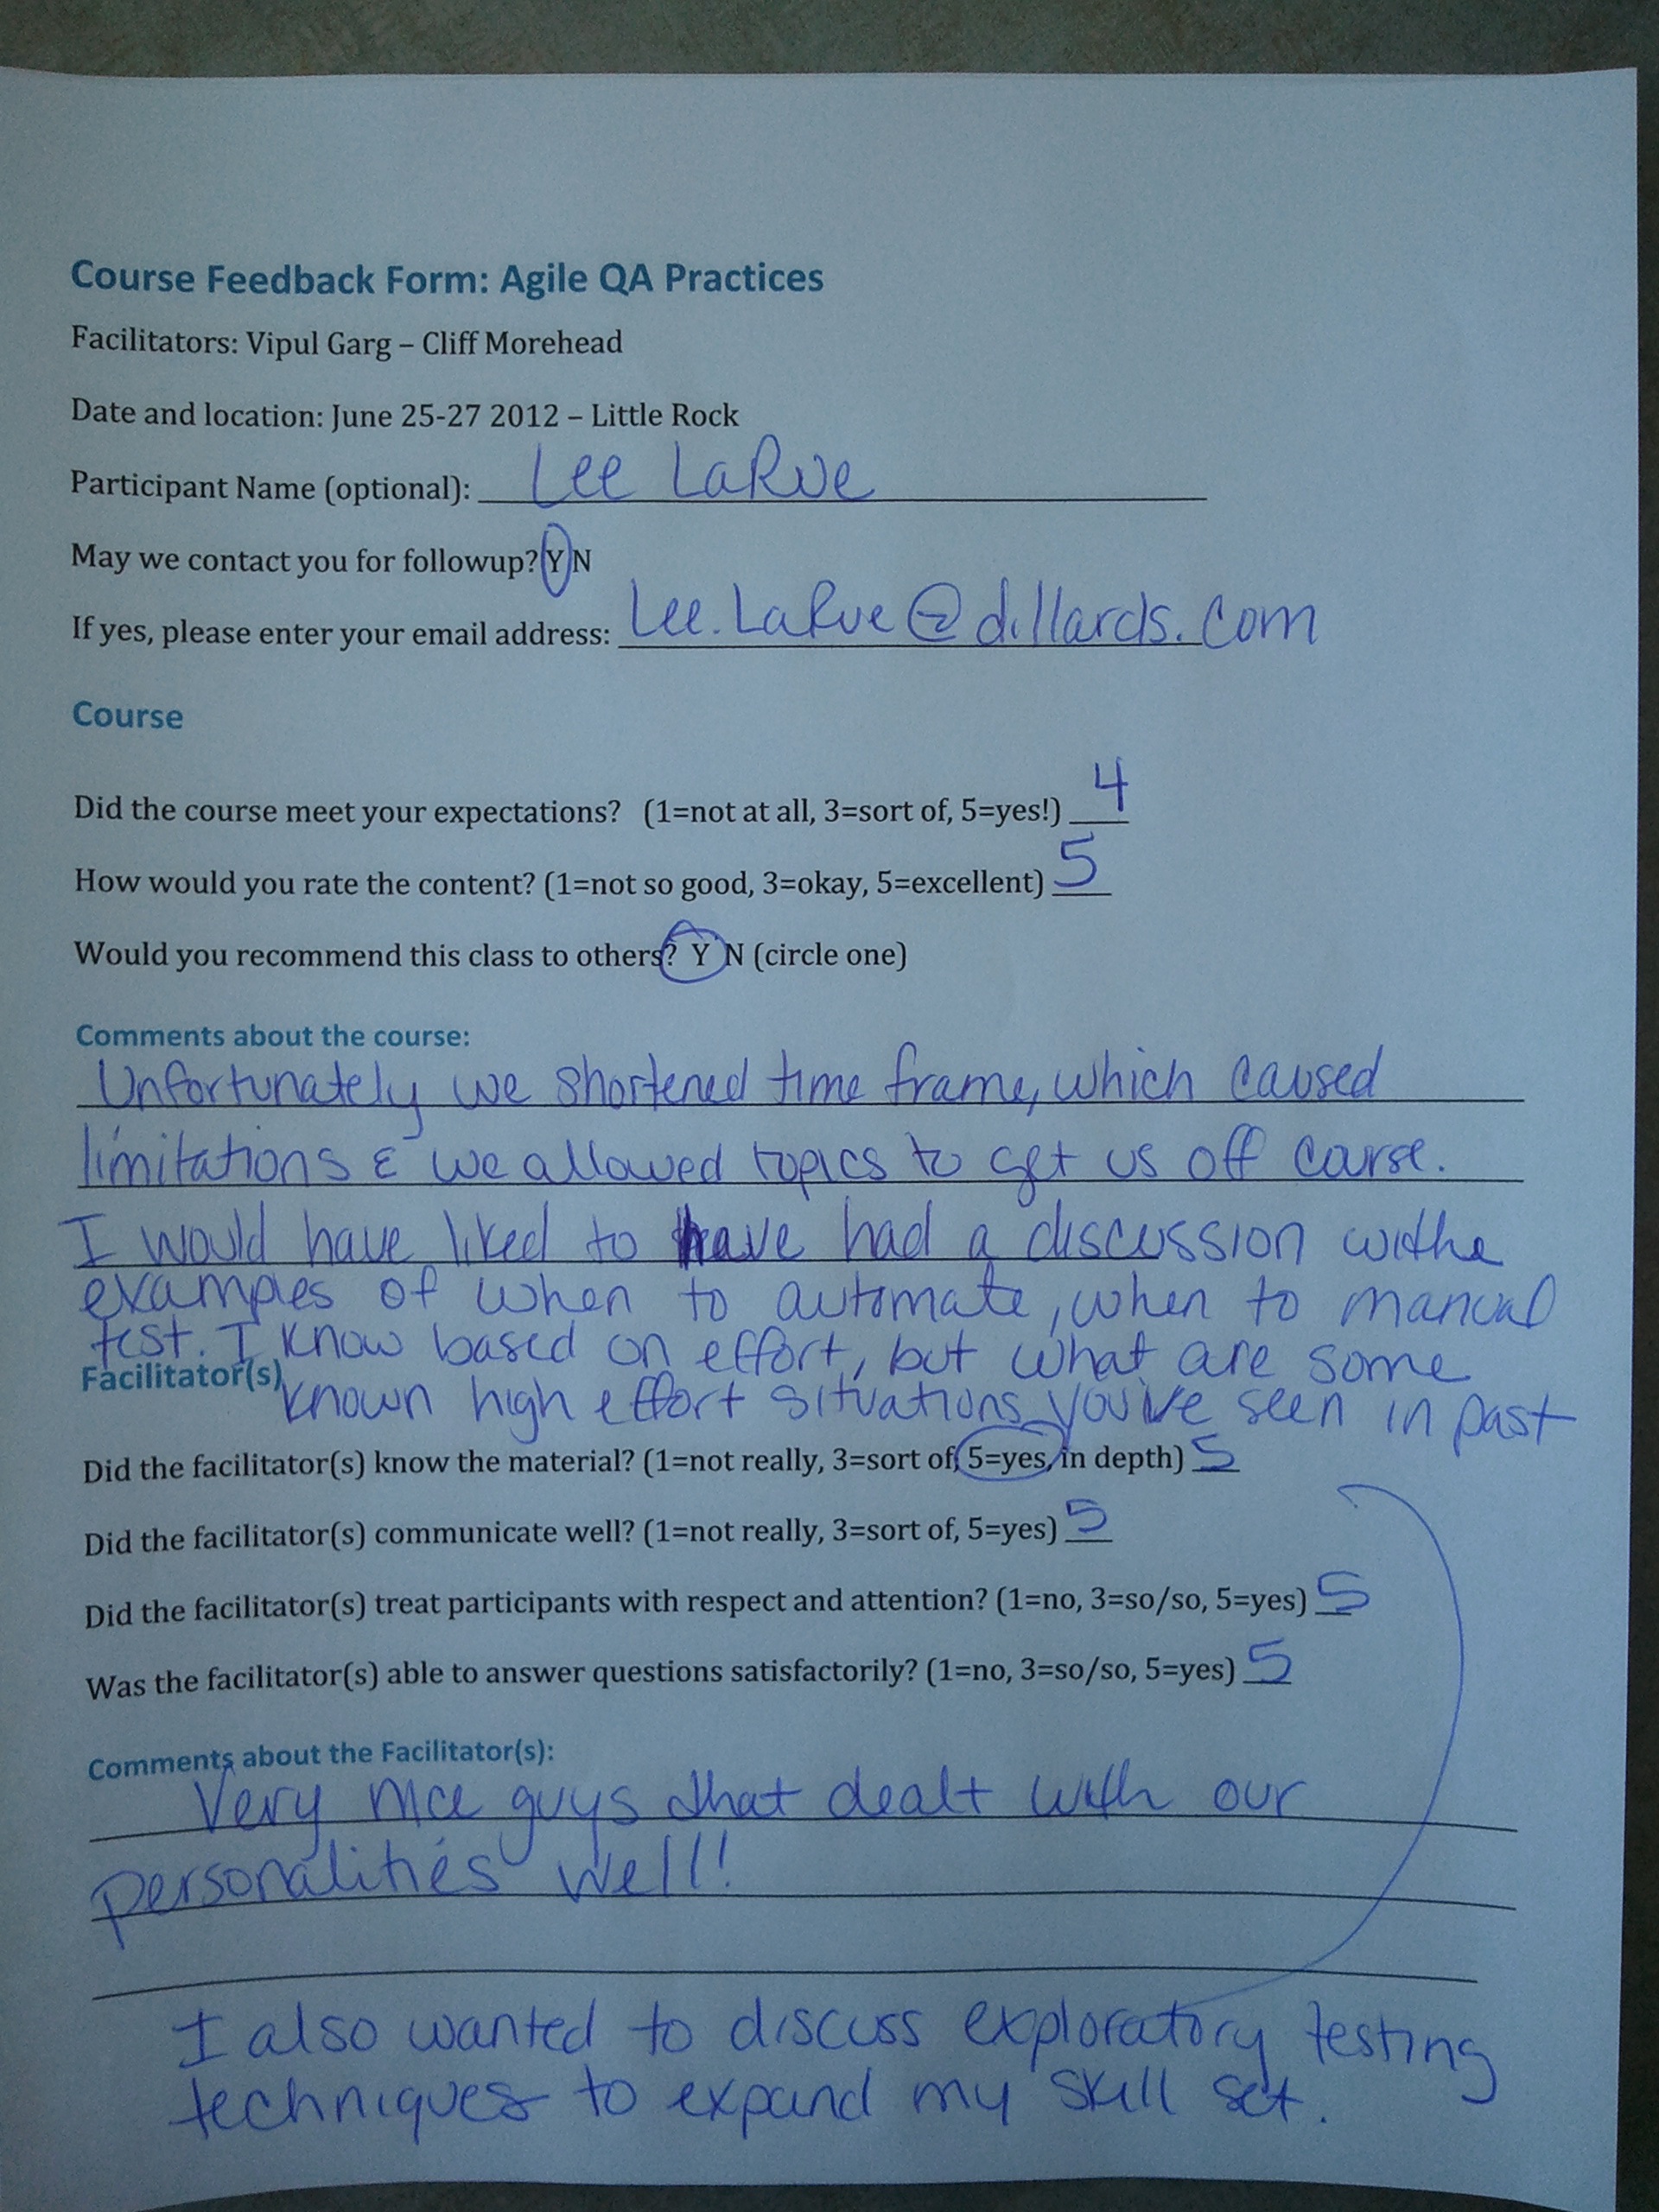 Course Feedback Form: Agile QA Practices
Facilitators: Vipul Garg – Cliff Morehead
Date and location: June 25-27 2012 – Little Rock
Participant Name (optional): Lee LaRue
May we contact you for followup? Y N
If yes, please enter your email address: Lee.LaRue@dillards.com
Course
Did the course meet your expectations? (1=not at all, 3=sort of, 5=yes!) 4
How would you rate the content? (1=not so good, 3=okay, 5=excellent) 5
Would you recommend this class to others? Y N (circle one)
Comments about the course:
Unfortunately we shortened time frame, which caused
limitations & we allowed topics to get us off course.
I would have liked to have had a discussion
examples of when to automate, when to manual
test. I know based on effort, but what are some
Facilitator(s)
known high effort situations you've seen in past
Did the facilitator(s) know the material? (1=not really, 3=sort of, 5=yes, in depth) 5
Did the facilitator(s) communicate well? (1=not really, 3=sort of, 5=yes) 5
Did the facilitator(s) treat participants with respect and attention? (1=no, 3=so/so, 5=yes) 5
Was the facilitator(s) able to answer questions satisfactorily? (1=no, 3=so/so, 5=yes) 5
Comments about the Facilitator(s):
Very nice guys that dealt with our
personalities well!
I also wanted to discuss exploratory testing
techniques to expand my skill set.